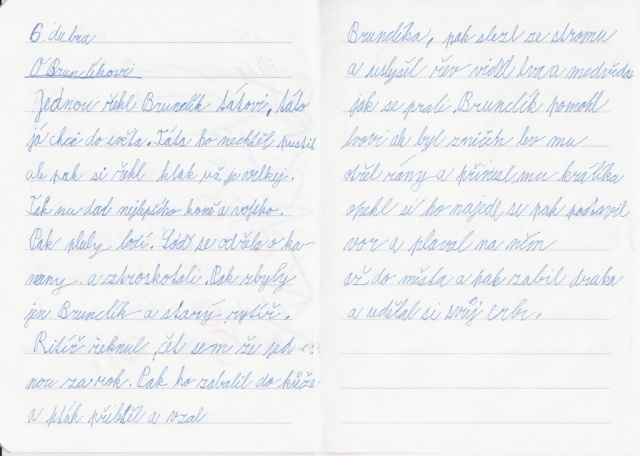 6. dubna
O Brunclíkovi
Jednou řekl Brunclík tátovi, táto
já chci do světa. Táta ho nechtěl pustit
ale pak si řekl kluk už je velkej.
Tak mu dal nejlepšího koně a vojsko.
Pak pluly lodí. Loď se odřela o ka-
meny a ztroskotali. Pak zbyly
jen Brunclík a starý rytíř.
Ritíř řeknul, čet sem že jed-
nou za rok. Pak ho zabalil do kůže
a pták přiletěl a vzal
Brunclíka, pak slezl ze stromu
a uslyšel řev viděl lva a medvěda
jak se prali. Brunclík pomohl
lvovi ale byl zničen lev mu
otřel rány a přinesl mu králíka
opekl si ho najedl se pak postavil
vor a plaval na něm
až do města a pak zabil draka
a udělal si svůj erb.